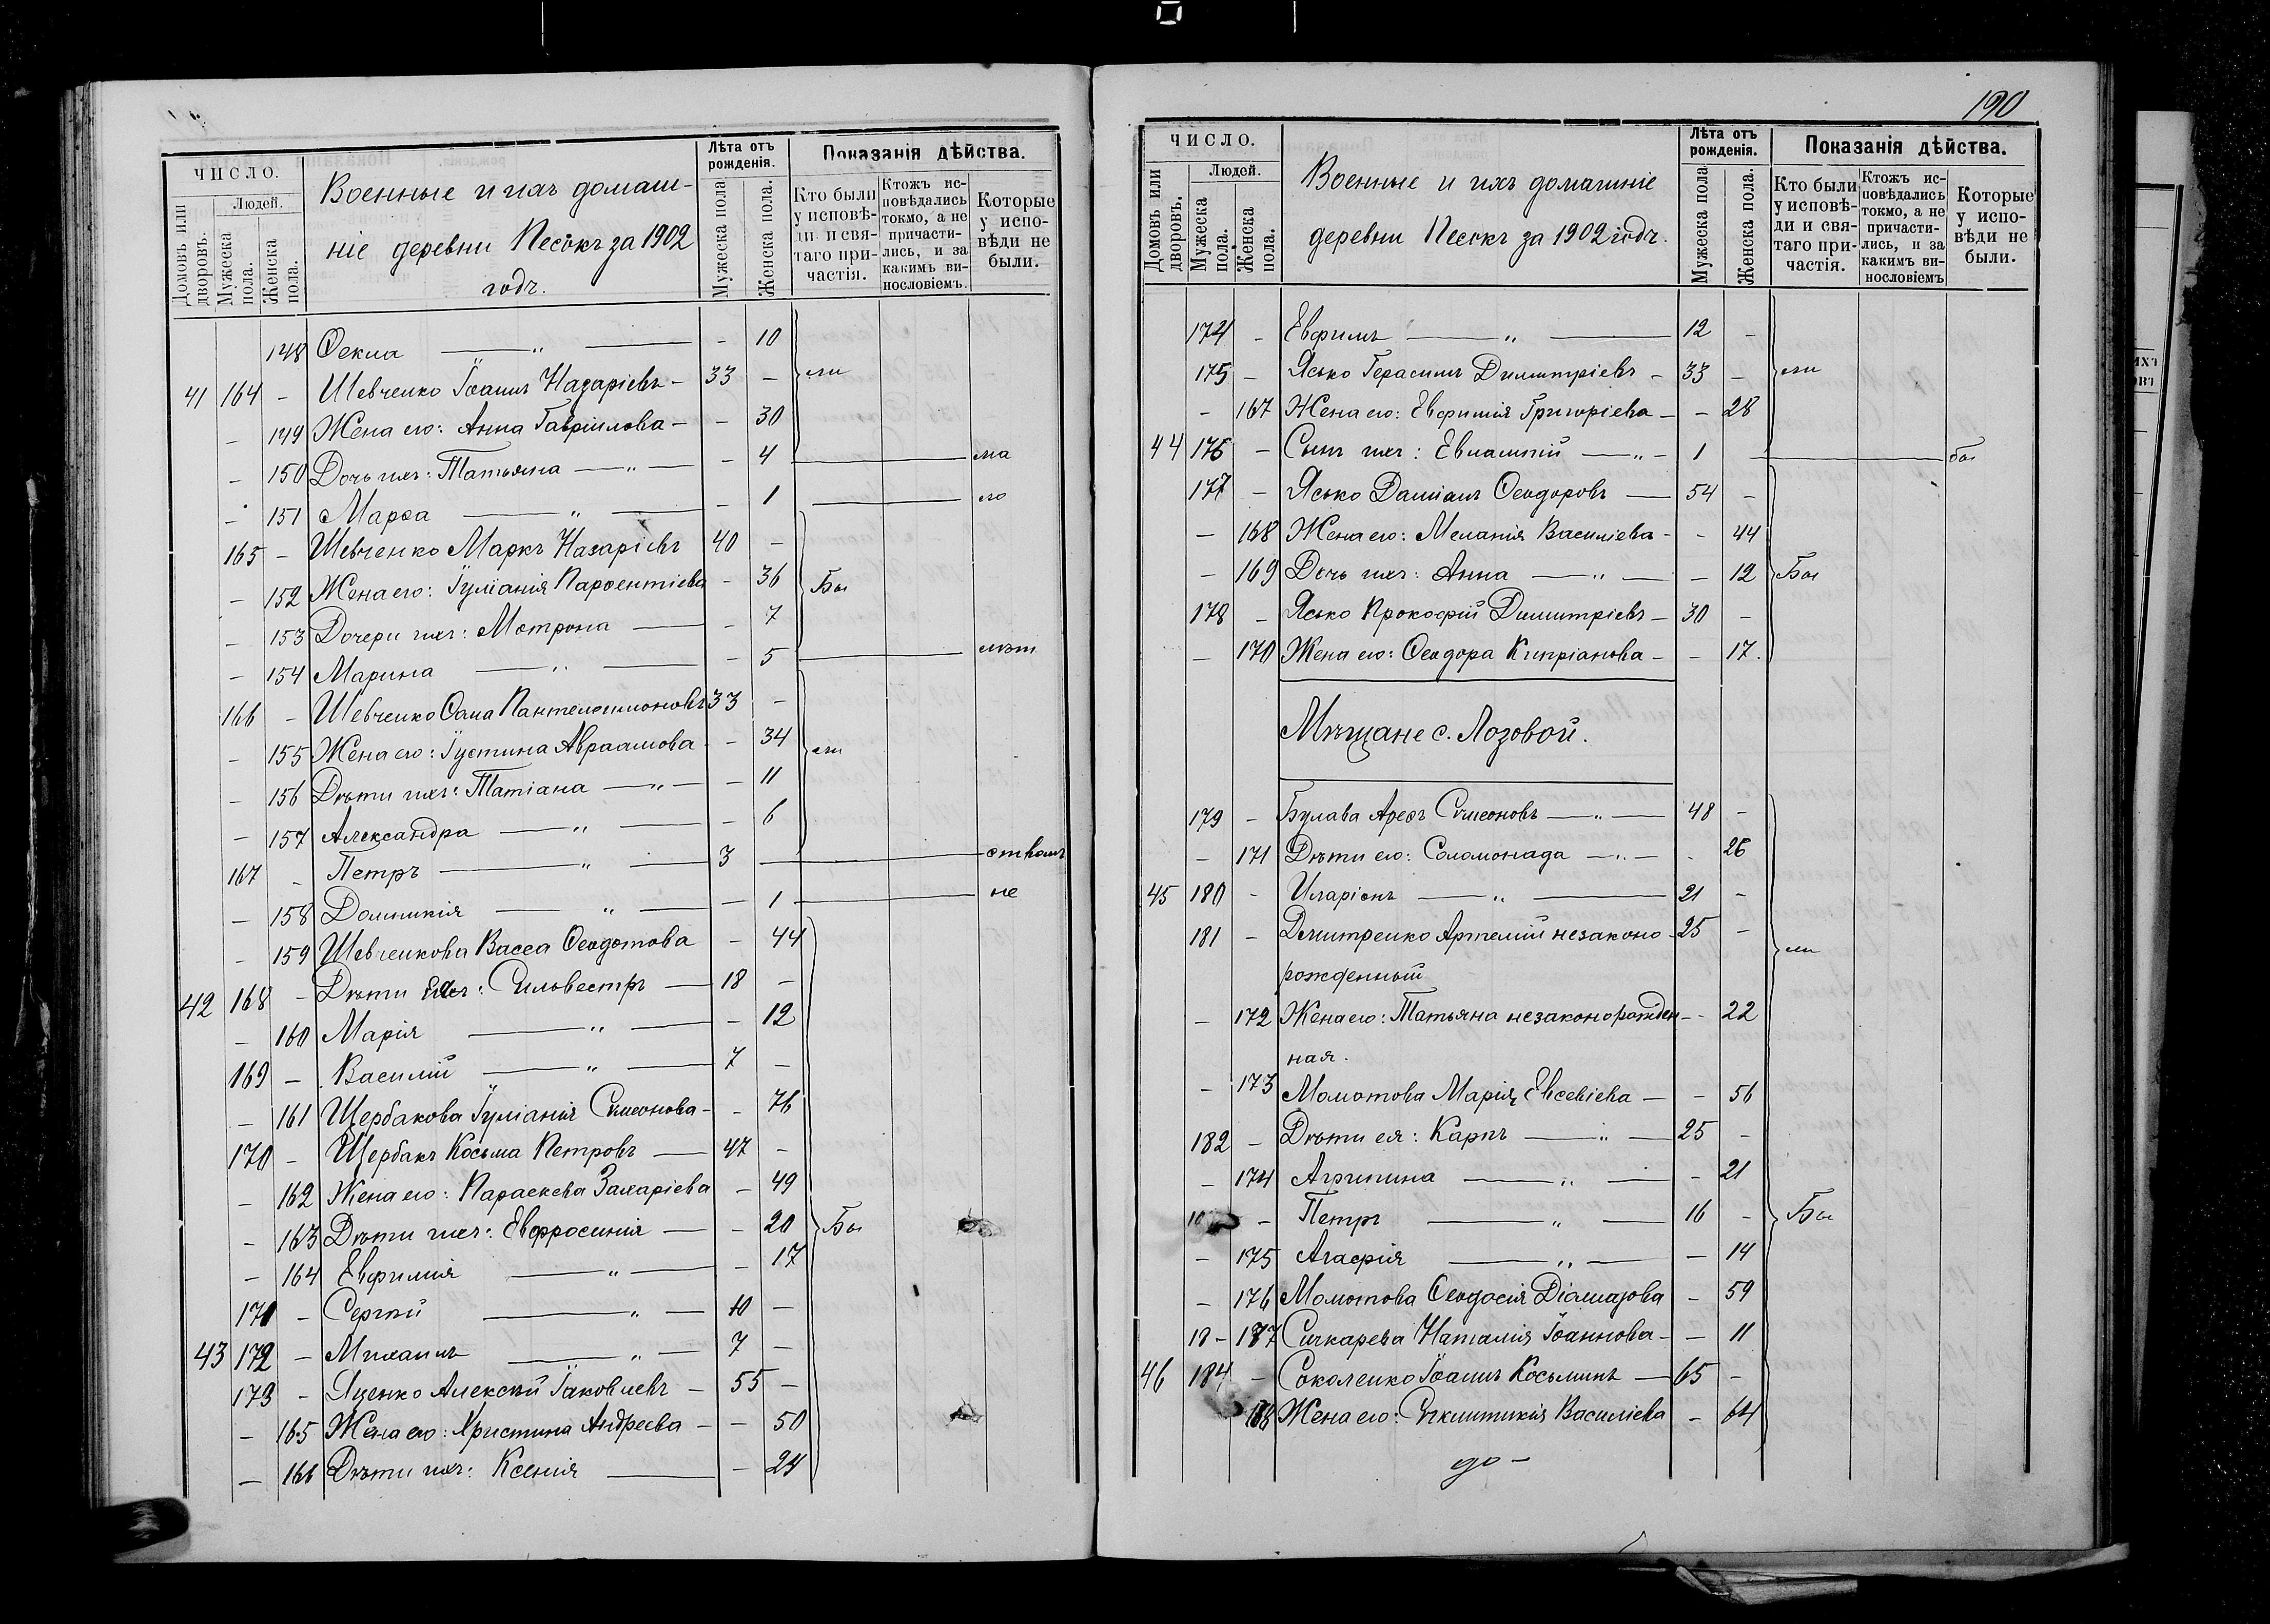 ЧИСЛО.
Людей.
Домовъ или дворовъ.
Мужеска пола.
Женска пола.
Военные и ихъ домаш-
ніе деревни Песокъ за 1902
годъ.
Лѣта отъ рожденія.
Мужеска пола
Женска пола.
Показанія дѣйства.
Кто были у исповѣ-ди и свя-таго при-частія.
Ктожъ ис-повѣдались токмо, а не причасти-лись, и за какимъ ви-нословіемъ.
Которые у испо-вѣди не были.
148 Ѳекла — „ — - 10
41 164 - Шевченко Іоаннъ Назаріевъ - 33 - ли
- 149 Жена его: Анна Гавріилова - - 30
- 150 Дочь ихъ: Татьяна — „ — - 4 ма
- 151 Марѳа — „ — - 1 ло
165 - Шевченко Маркъ Назаріевъ 40 -
- 152 Жена его: Іуліанія Парѳентіева - 36 Бы
- 153 Дочери ихъ: Мотрона — - 7
- 154 Марина — „ — - 5 лѣт
166 - Шевченко Ѳома Пантелеимоновъ 33 -
- 155 Жена его: Іустина Авраамова - - 34 ли
- 156 Дѣти ихъ: Татіана — „ — - 11
- 157 Александра — „ — - 6
167 - Петръ — „ — 3 — ствомъ
- 158 Домникія — „ — - 1 не
- 159 Шевченкова Васса Ѳеодотова - 44
42 168 - Дѣти ея: Сильвестръ — 18 -
- 160 Марія — „ — - 12
169 - Василій — „ — 7 -
- 161 Щербакова Іуліанія Симеонова - - 76
170 - Щербакъ Косьма Петровъ — 47 -
- 162 Жена его: Параскева Захаріева - 49
- 163 Дѣти ихъ: Евфросинія — - 20 Бы
- 164 Евфимія — „ — - 17
171 - Сергѣй — „ — 10 -
43 172 - Михаилъ — „ — 7 -
173 - Яценко Алексѣй Іаковлевъ - 55 -
- 165 Жена его: Христина Андреева - - 50
- 166 Дѣти ихъ: Ксенія — - 24
190
ЧИСЛО.
Людей.
Домовъ или дворовъ.
Мужеска пола.
Женска пола.
Военные и ихъ домашніе
деревни Песокъ за 1902 годъ.
Лѣта отъ рожденія.
Мужеска пола
Женска пола.
Показанія дѣйства.
Кто были у исповѣ-ди и свя-таго при-частія.
Ктожъ ис-повѣдались токмо, а не причасти-лись, и за какимъ ви-нословіемъ
Которые у испо-вѣди не были.
174 - Евфимъ — „ — 12 -
175 - Ясько Герасимъ Димитріевъ - 33 - ли
- 167 Жена его: Евфимія Григоріева - - 28
44 176 - Сынъ ихъ: Евлампій — „ - 1 — бы
177 - Ясько Даміанъ Ѳеодоровъ — 54 -
- 168 Жена его: Меланія Василіева - - 44
- 169 Дочь ихъ: Анна — „ — - 12 Бы
178 - Ясько Прокофій Димитріевъ - 30 -
- 170 Жена его: Ѳеодора Кипріанова - - 17.
Мѣщане с. Лозовой.
179 - Булава Ареѳъ Симеоновъ — „ — 48 -
- 171 Дѣти его: Соломонада — „ — - 26
45 180 - Иларіонъ — „ — 21 -
181 - Демитренко Артемій незаконо- 25 - ли
рожденный
- 172 Жена его: Татьяна незаконорожден- - 22
ная.
- 173 Момотова Марія Евсевіева — - 56
182 - Дѣти ея: Карпъ — „ — 25 -
- 174 Агрипина — „ — - 21
- Петръ — „ — 16 - Бы
- 175 Агафія — „ — - 14
- 176 Момотова Ѳеодосія - 59
Сичкарева Наталія Іоаннова - - 11
46 184 - Соколенко Іоаннъ Косьминъ — 65 -
Жена его: Василіева - 64
до -